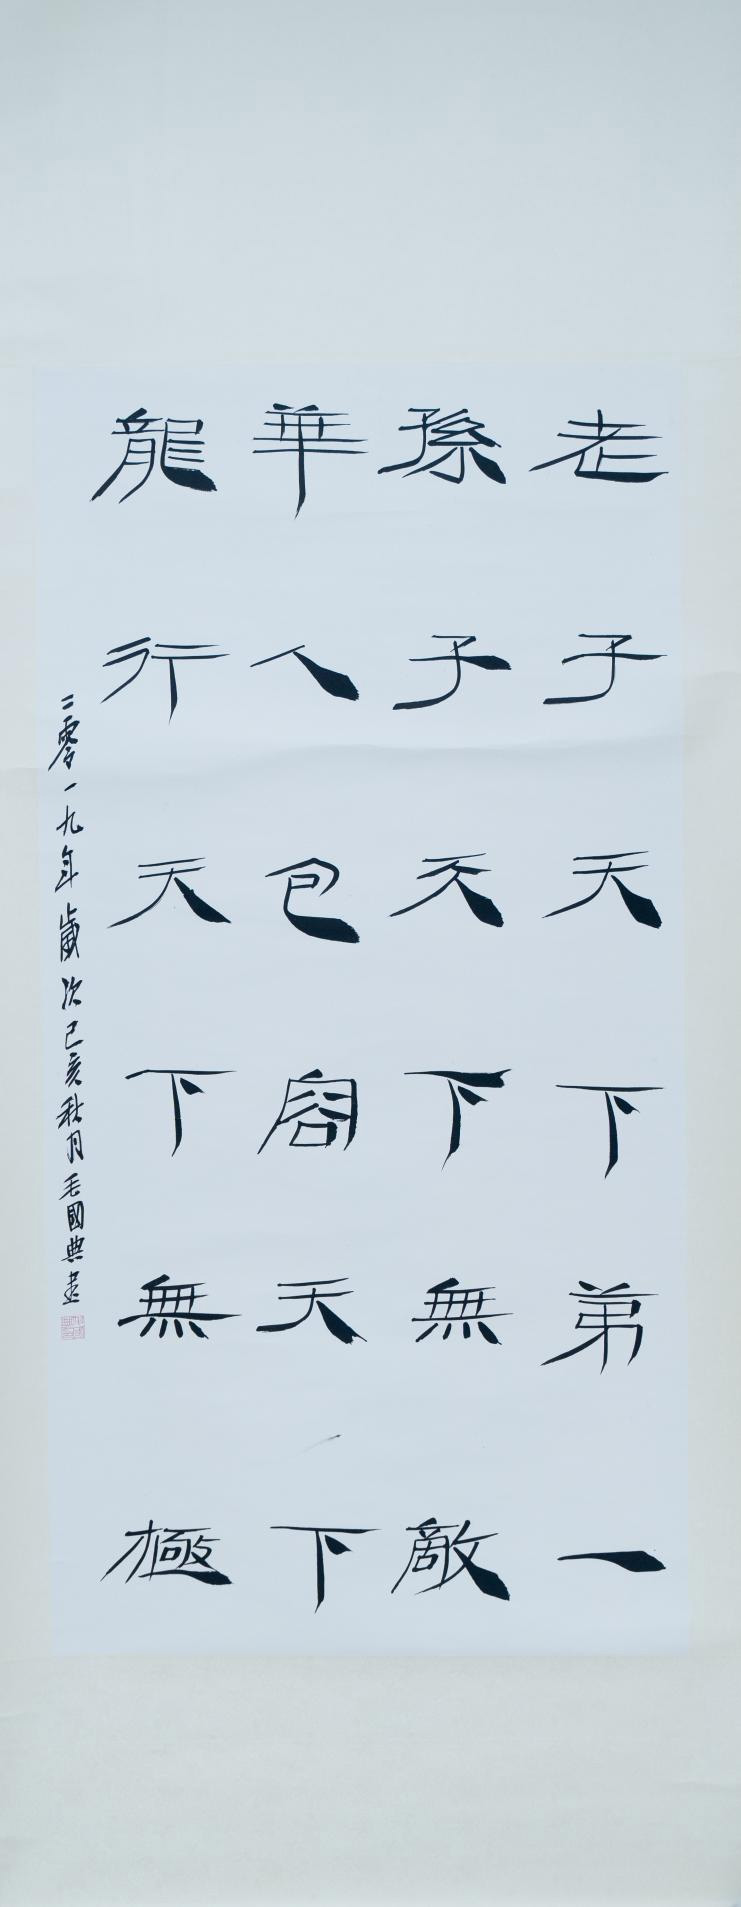 老子天下弟一
孫子天下無敵
華人包容天下
龍行天下無極
二零一九年歲次己亥秋月毛國典書